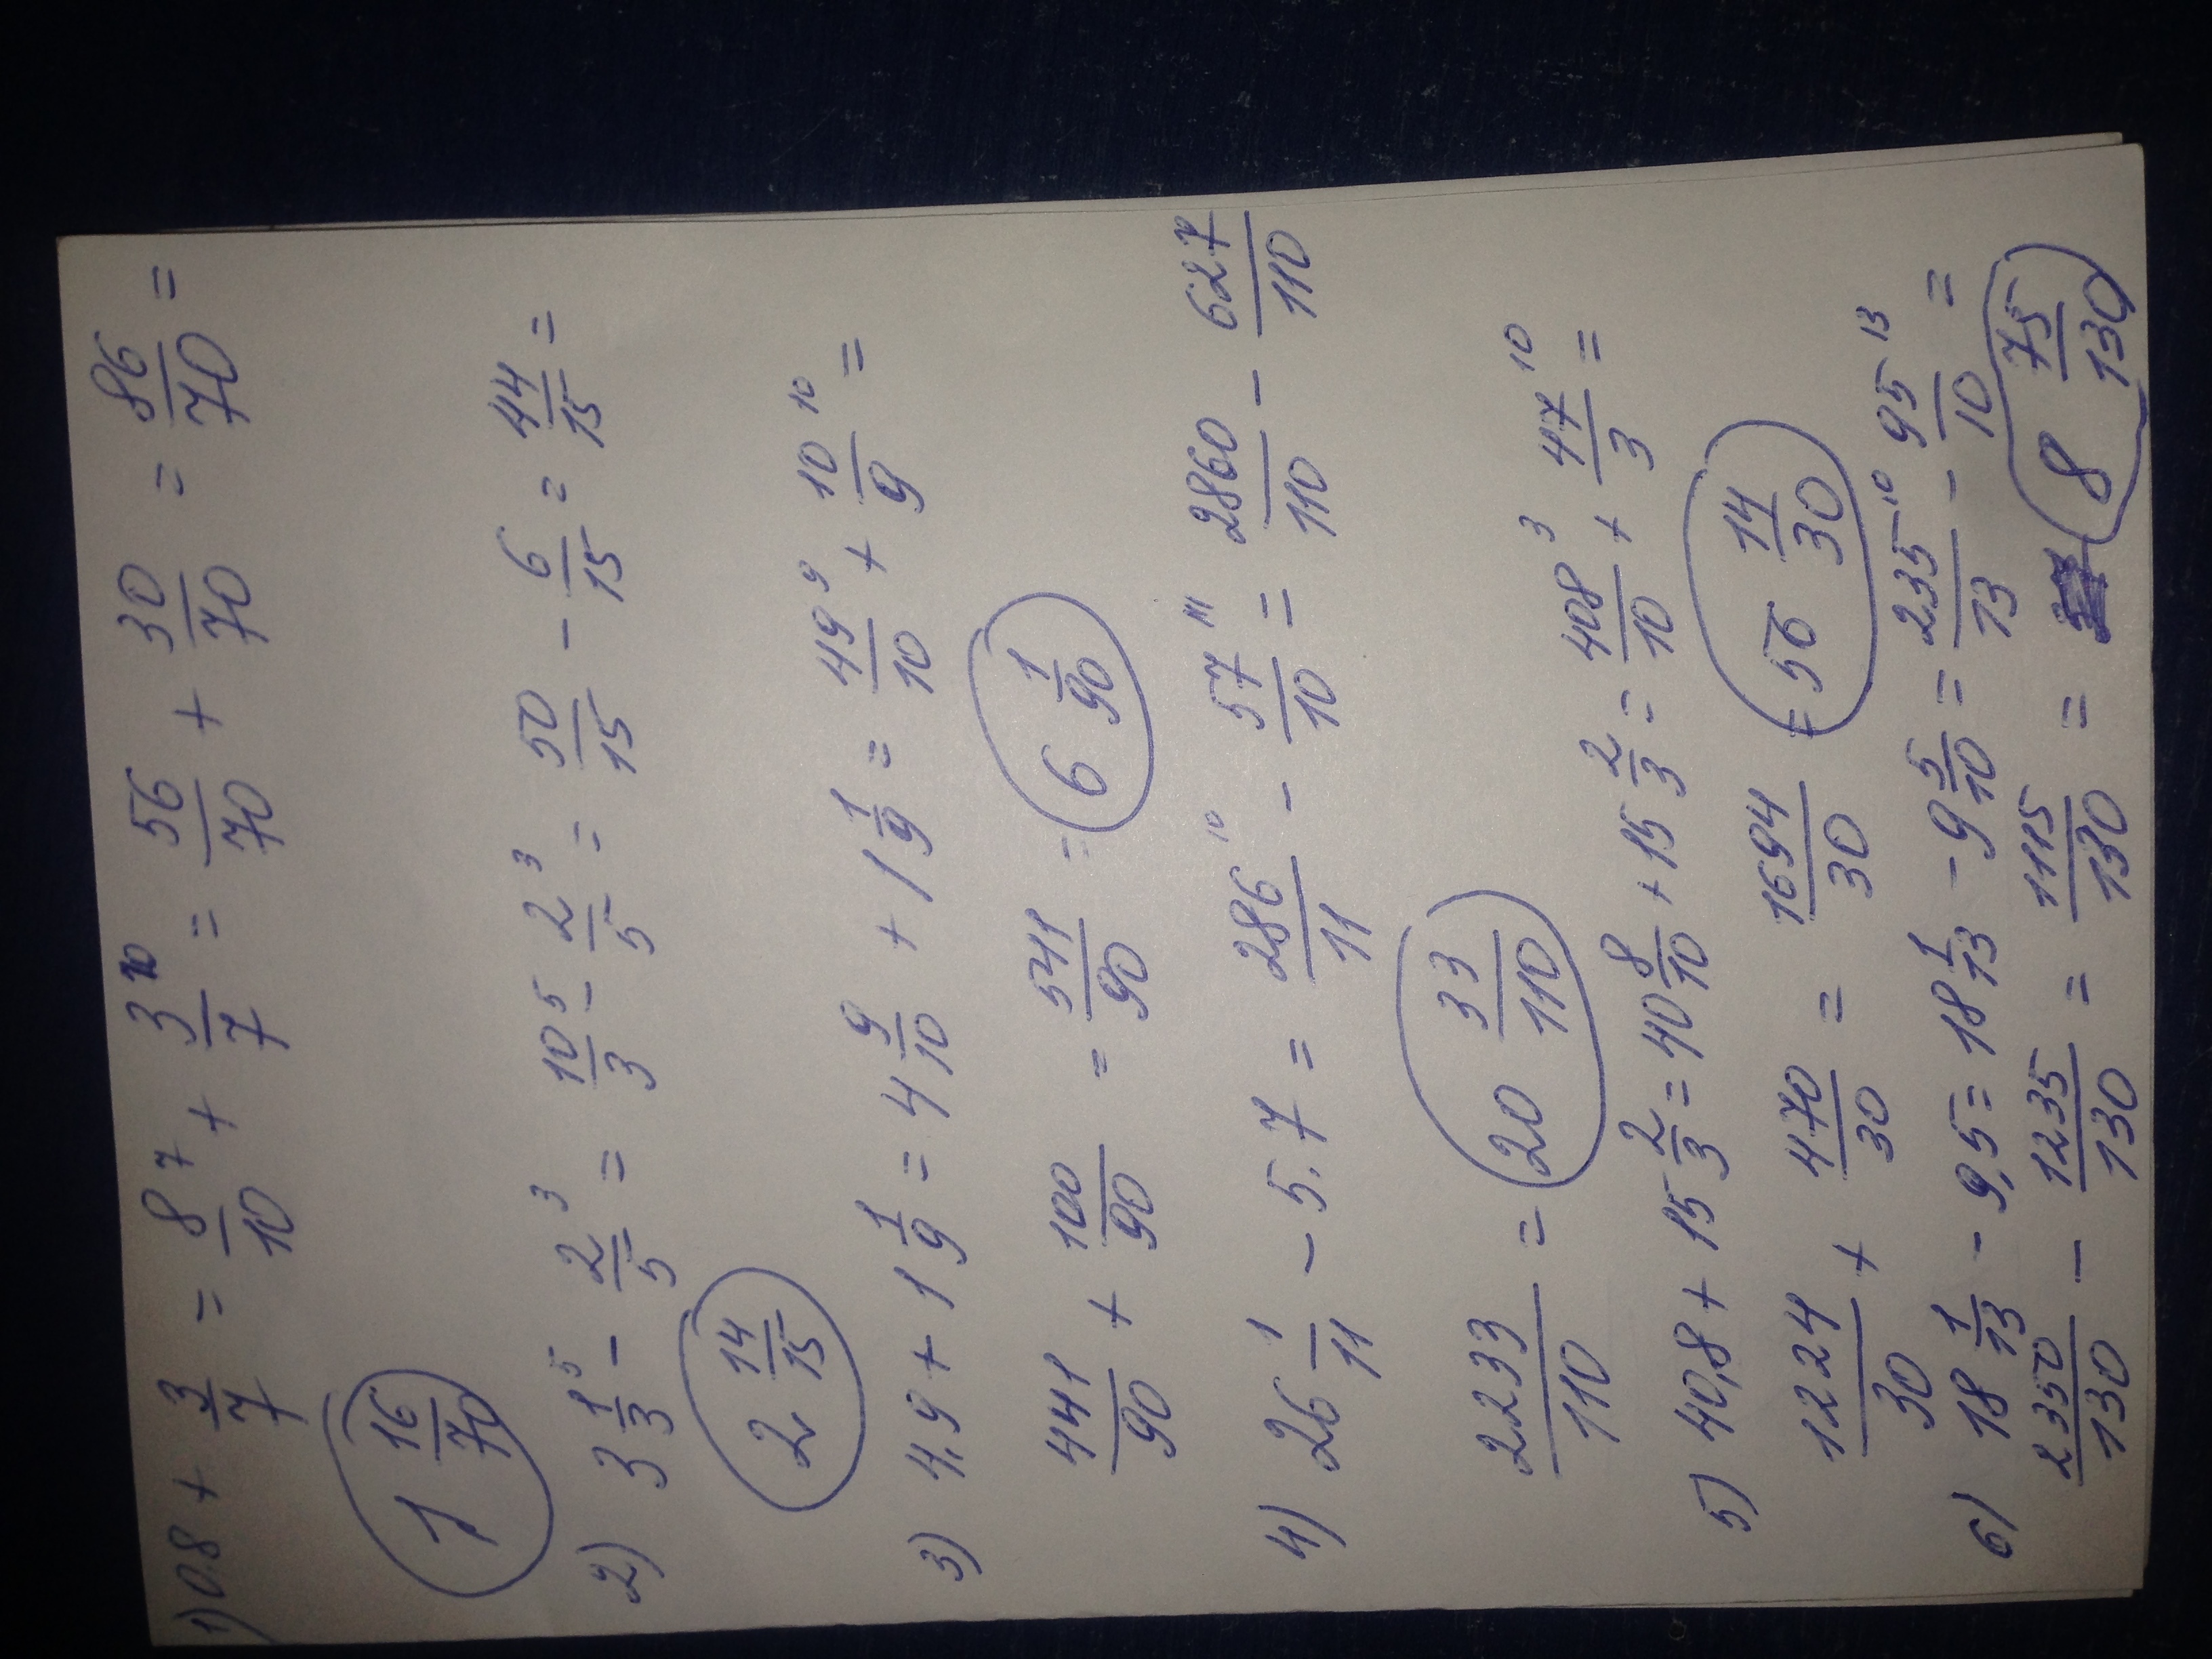 1) 0.8 + 3/7 = 8/10 ⁷ + 3/7 ¹⁰ = 56/70 + 30/70 = 86/70 =
1 16/70
2) 3 1/3 ⁵ - 2/5 ³ = 10/3 ⁵ - 2/5 ³ = 50/15 - 6/15 = 44/15 =
2 14/15
3) 4,9 + 1 1/9 = 4 9/10 + 1 1/9 = 49/10 ⁹ + 10/9 ¹⁰ =
441/90 + 100/90 = 541/90 = 6 1/90
4) 26 1/11 - 5.7 = 286/11 ¹⁰ - 57/10 ¹¹ = 2860/110 - 627/110
2233/110 = 20 33/110
5) 40,8 + 15 2/3 = 40 8/10 + 15 2/3 = 408/10 ³ + 47/3 ¹⁰ =
1224/30 + 470/30 = 1694/30 = 56 14/30
6) 18 1/13 - 9,5 = 18 1/13 - 9 5/10 = 235/13 ¹⁰ - 95/10 ¹³ =
2350/130 - 1235/130 = 1115/130 = 8 75/130